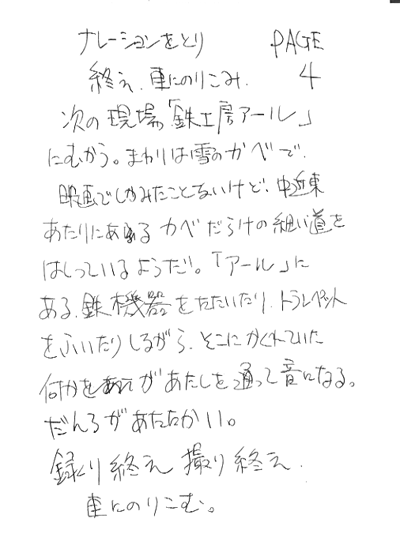 ナレーションをとり PAGE
終え、車にのりこみ、 4
次の現場「鉄工房アール」
にむかう。まわりは雪のカベで、
映画でしかみたことないけど、中近東
あたりにあるカベだらけの細い道を
はしっているようだ。「アール」に
ある、鉄機器をたたいたり、トランペット
をふいたりしながら、そこにかくれていた
何かが あたしを通って音になる。
だんろがあたたかい。
録り終え 撮り終え、
車にのりこむ。